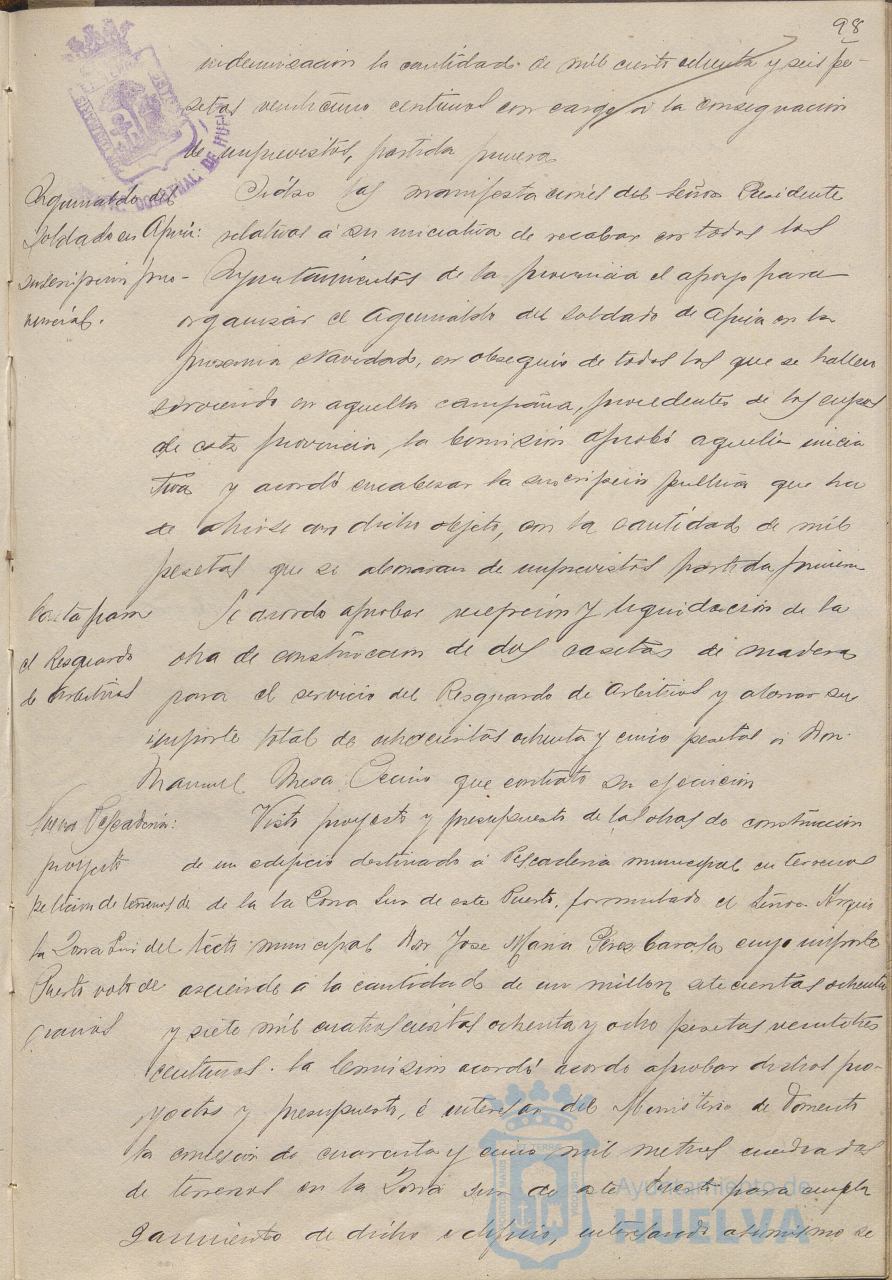 98
indemnización la cantidad de mil ciento ochenta y seis pe-
setas veinticinco centimos con cargo a la consignación
de imprevistos, partida primera
Aguinaldo del
Soldado en Africa:
suscripción pro-
vincial.
Oidas las manifestaciones del Señor Presidente
relativas á su iniciativa de recabar en todos los
Ayuntamientos de la provincia el apoyo para
organizar el Aguinaldo del soldado de Africa en la
proxima Navidad, en obsequio de todos los que se hallen
sirviendo en aquella campaña, procedentes de los cupos
de esta provincia, la Comisión aprobó aquella inicia
tiva y acordó encabezar la suscripcion publica que ha
de abrirse con dicho objeto, con la cantidad de mil
pesetas que se abonaran de imprevistos partida primera
Caseta para
el Resguardo
de Arbitrios
Se acordo aprobar recepción y liquidación de la
obra de construccion de dos casetas de madera
para el servicio del Resguardo de Arbitrios y abonar su
importe total de ochocientas ochenta y cinco pesetas a Don
Manuel Mesa que contrato su ejecución
Nueva Pescaderia:
proyecto
peticion de terrenos de
la Zona Sur del
Puerto voto de
gracias
Visto proyecto y presupuesto de las obras de construccion
de un edificio destinado á Pescaderia municipal en terrenos
de la la Zona Sur de este Puerto, formulado el Señor Arqui
tecto municipal Don Jose Maria Perez Carasa cuyo importe
asciende á la cantidad de un millon setecientas ochenta
y siete mil cuatrocientas ochenta y ocho pesetas veintitres
centimos. La Comision acordó acordo aprobar dichos pro-
yectos y presupuesto, é interesar del Ministerio de Fomento
la concesion de cuarenta y cinco mil metros cuadrados
de terrenos en la Zona sur de este Puerto para empla
zamiento de dicho edificio, interesando asimismo se
Ayuntamiento de
HUELVA